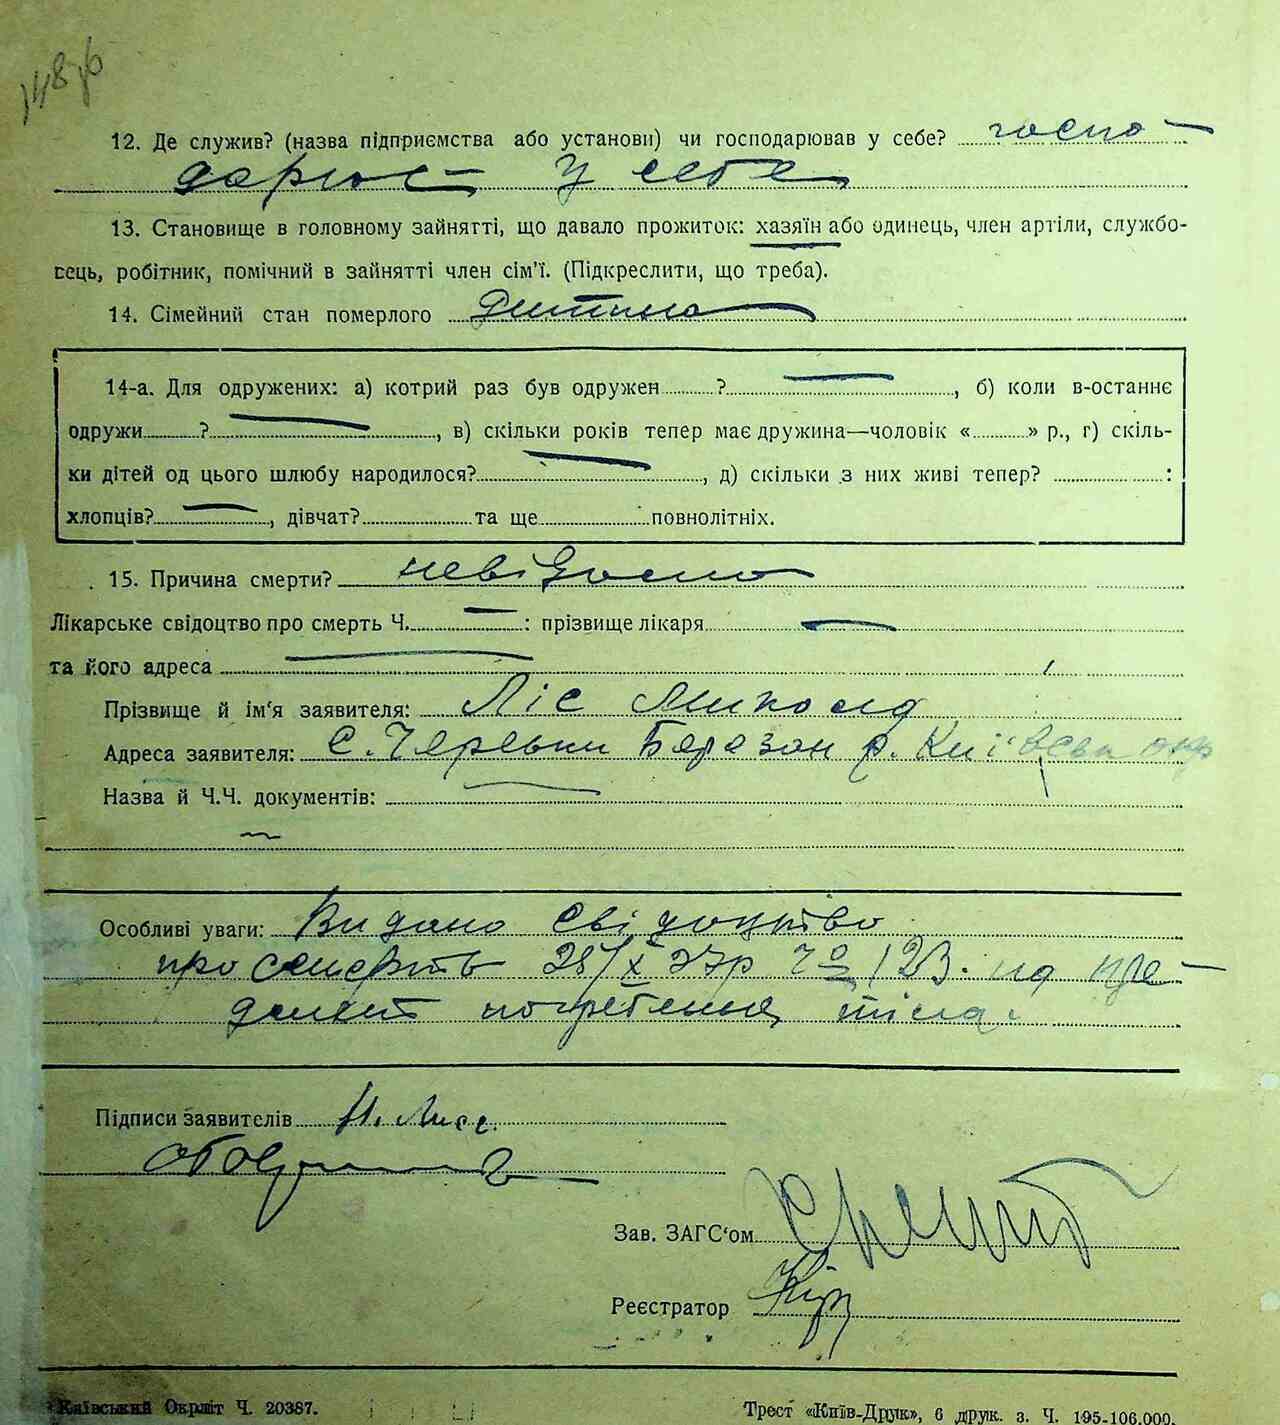 148 зв
12. Де служив? (назва підприємства або установи) чи господарював у себе? госпо-
дарює у себе
13. Становище в головному зайнятті, що давало прожиток: хазяїн або одинець, член артіли, службо-
вець, робітник, помічний в зайнятті член сім'ї. (Підкреслити, що треба).
14. Сімейний стан померлого Дитина
14-а. Для одружених: а) котрий раз був одружен ? , б) коли в-останнє
одружи ? , в) скільки років тепер має дружина—чоловік « » р., г) скіль-
ки дітей од цього шлюбу народилося? , д) скільки з них живі тепер? :
хлопців? , дівчат? та ще повнолітніх.
15. Причина смерти? невідомо
Лікарське свідоцтво про смерть Ч. : прізвище лікаря
та його адреса
Прізвище й ім'я заявителя: Ліс Микола
Адреса заявителя: с. Черевки Баразан р. Київськ окр
Назва й Ч.Ч. документів:
Особливі уваги: Видано свідоцтво
про смерть 28/X 27р Чо 123. на пре-
дмет погребення тіла.
Підписи заявителів Н. Лисс.
Зав. ЗАГС'ом
Реєстратор
Київський Окрліт Ч. 20387.
Трест «Київ-Друк», 6 друк. з. Ч. 195-106.000.